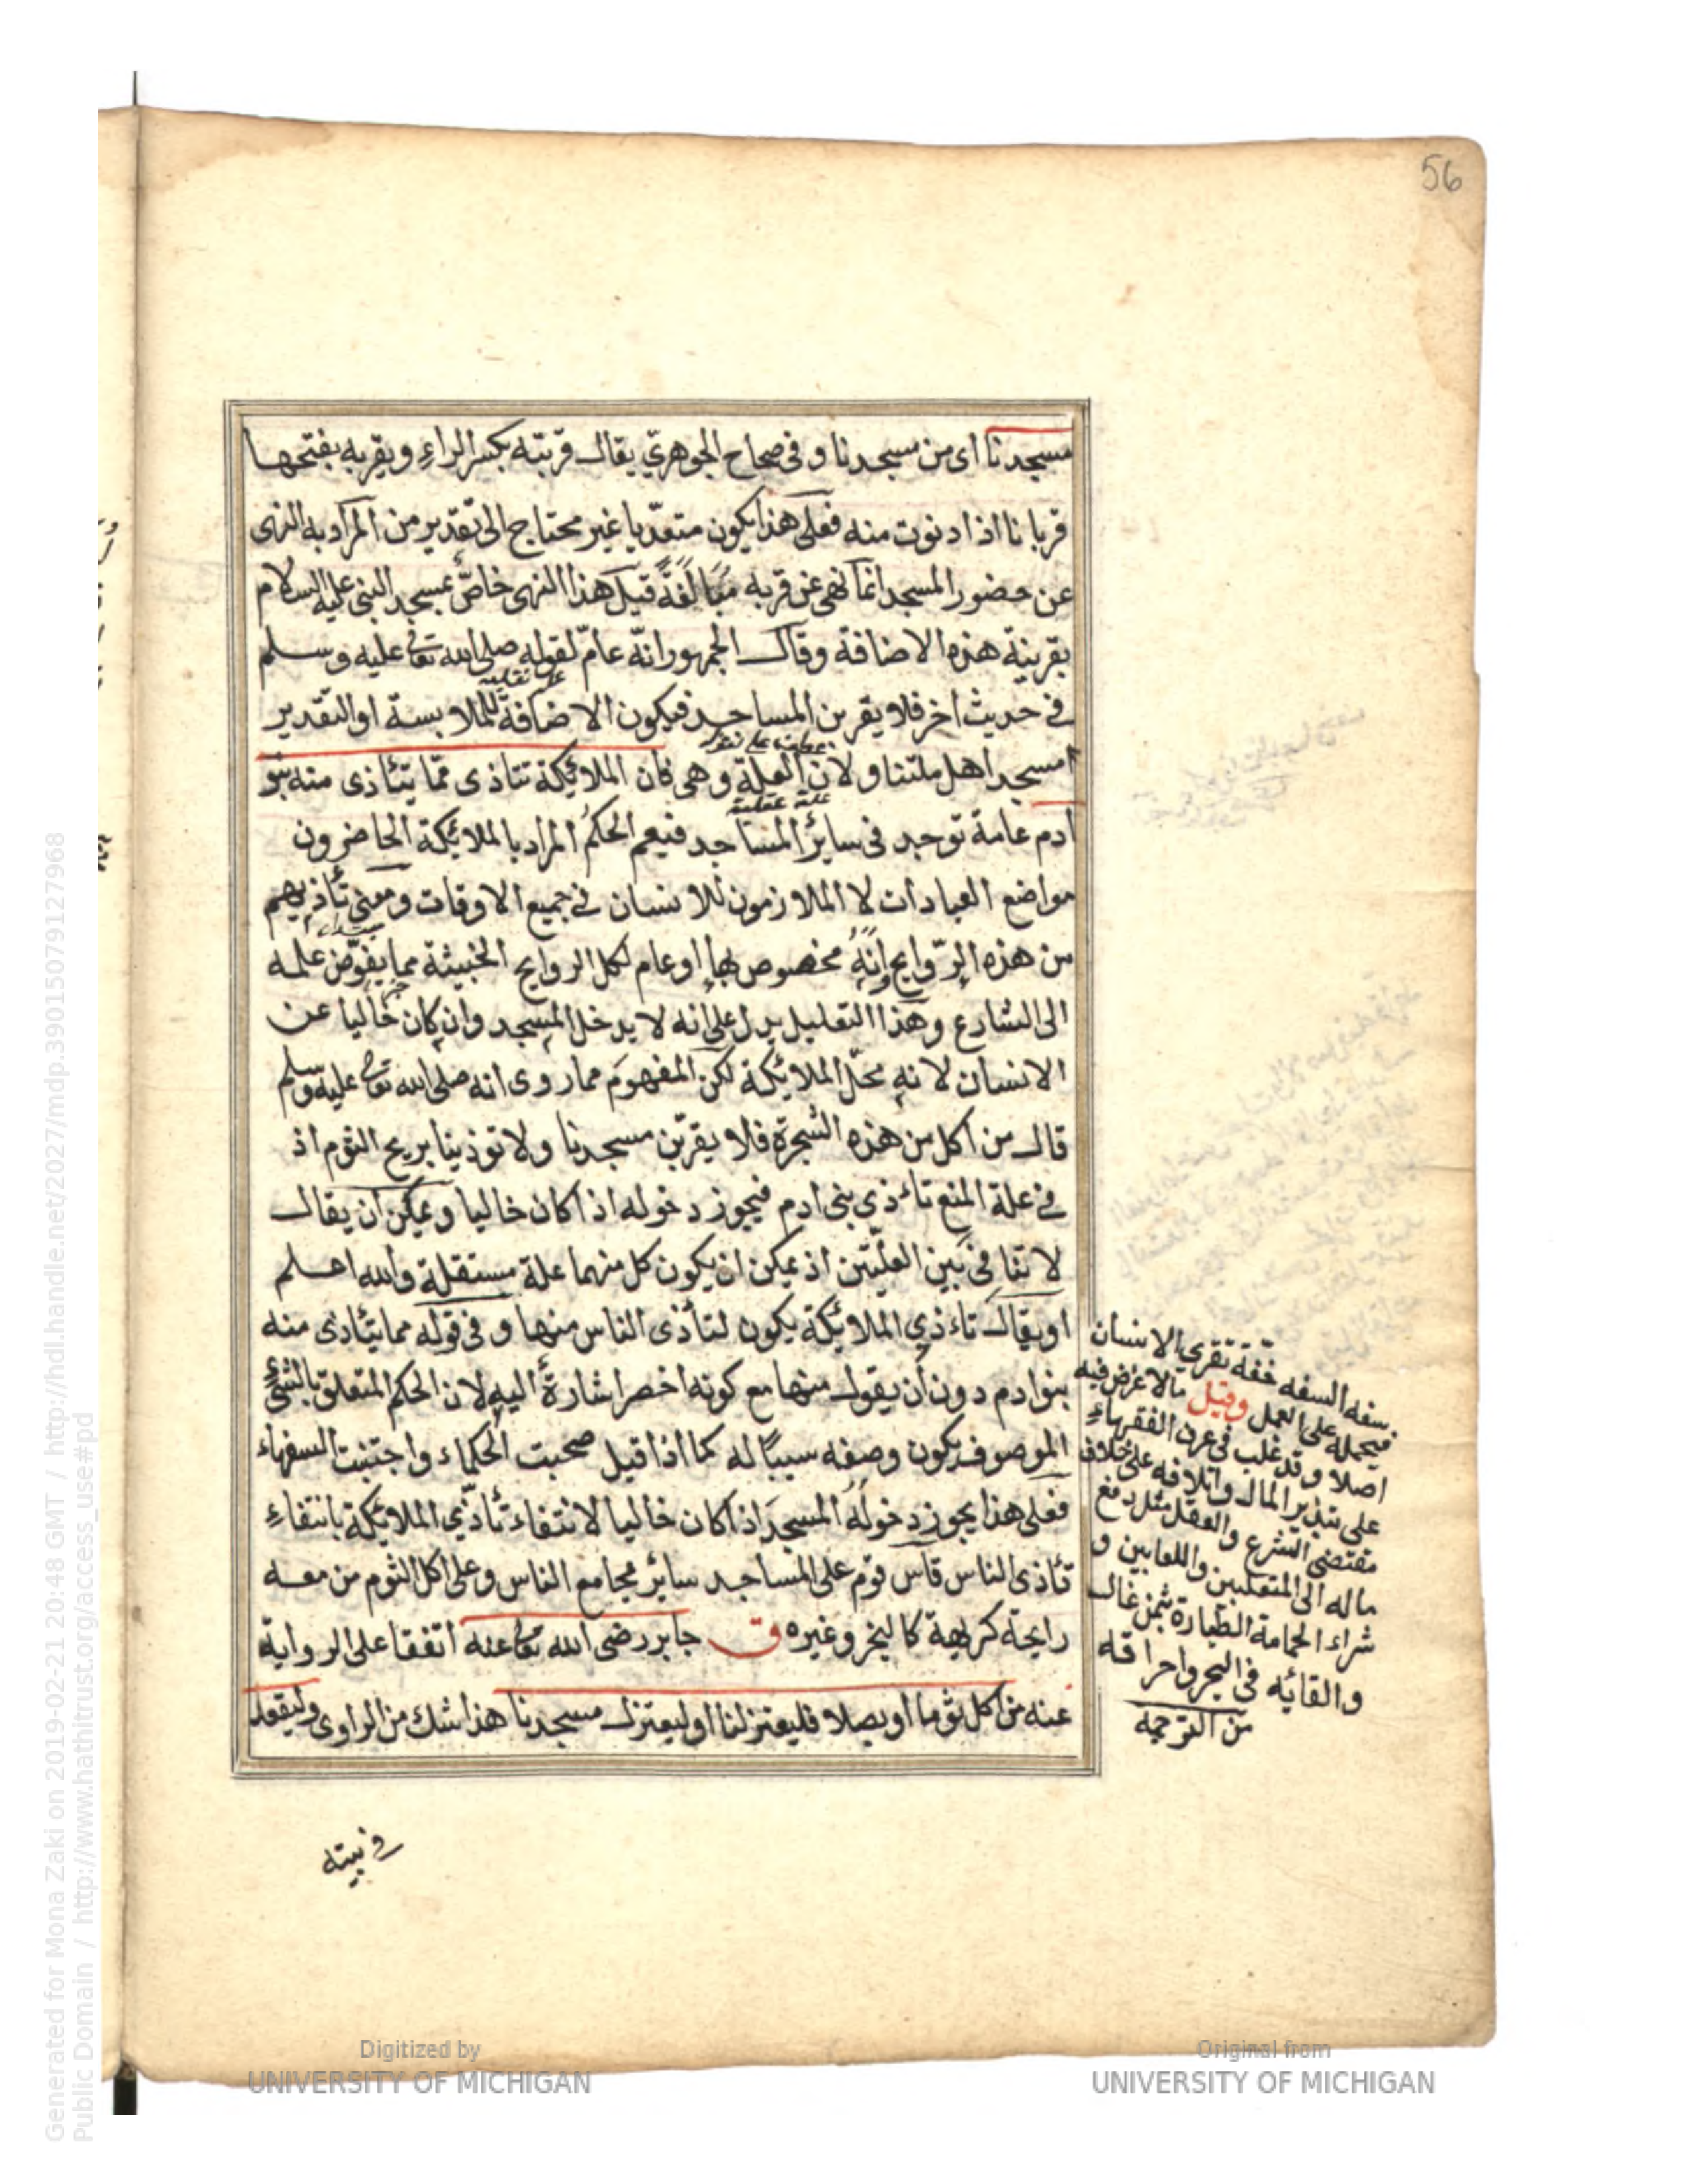 56
مسجدنا اى من مسجدنا و فى صحاح الجوهرىّ يقال قربته بكسر الراء و يقربه بفتحها
قربانا اذا دنوت منه فعلى هذا يكون متعدّيا غير محتاج الى تقدير من المراد به النهى
عن حضور المسجد انما نهى عن قربه مبالغةً قيل هذا النهى خاصّ بمسجد النبى عليه السلام
بقرينة هذه الاضافة وقال الجمهور انّه عامّ لقوله صلى الله تعالى عليه وسلم
علة نقلية
فى حديث اخر فلا يقربن المساجد فيكون الاضافة للملابسة او التقدير
مسجد اهل ملتنا و لان العلة و هى فان الملائكة تتاذى ممّا يتأذى منه بنو
علة عقلية
ادم عامة توجد فى سائر المساجد فيعم الحكم المراد بالملائكة الحاضرون
مواضع العبادات لا الملازمون للانسان فى جميع الاوقات ومعنى تأذيهم
من هذه الرّوايح وانهُ مخصوص بها او عام لكل الروايح الخبيثة مما يفوّض علمه
الى الشارع وهذا التعليل يدل على انه لا يدخل المسجد وان كان خاليا عن
الانسان لانه محلّ الملائكة لكن المفهوم مما روى انه صلى الله تعالى عليه وسلم
قال من اكل من هذه الشجرة فلا يقربن مسجدنا ولا توذينا بريح الثوم اذ
فى علة المنع تاءذي بنى ادم فيجوز دخوله اذا كان خاليا ويمكن ان يقال
لا تنافى بين العلّتين اذ يمكن ان يكون كل منهما علة مستقلة والله اعلم
او يقال تاءذي الملائكة يكون لتأذى الناس منها و فى قوله مما يتأذى منه
بنو ادم دون ان يقول منها مع كونه اخصر اشارةً اليه لان الحكم المتعلق بالشئ
الموصوف يكون وصفه سببًا له كما اذا قيل صحبت الحكماء واجتنبت السفهاء
فعلى هذا يجوز دخولُهُ المسجدَ اذا كان خاليا لانتفاء تأذّي الملائكة بانتفاء
تأذى الناس قاس قوم على المساجد سائر مجامع الناس وعلى اكل الثوم من معه
رايحة كريهة كالبخر وغيره ق جابر رضى الله تعالى عنه اتفقا على الرواية
عنه من اكل ثوما او بصلا فليعتزلنا او ليعتزل مسجدنا هذا شك من الراوى وليقعد
سفه السفه خفة تعترى الانسان
فيحمله على العمل وقيل مالا غرض فيه
اصلا وقد غلب فى عرف الفقهاء
على تبذير المال واتلافه على خلاف
مقتضى الشرع والعقل مثل دفع
ماله الى المتغلبين واللعابين و
شراء الحمامة الطيارة بثمن غال
والقائه فى البحر واحراقه
من الترجمه
فى بيته
Generated for Mona Zaki on 2019-02-21 20:48 GMT / http://hdl.handle.net/2027/mdp.39015079127968
Public Domain / http://www.hathitrust.org/access_use#pd
Digitized by
UNIVERSITY OF MICHIGAN
Original from
UNIVERSITY OF MICHIGAN